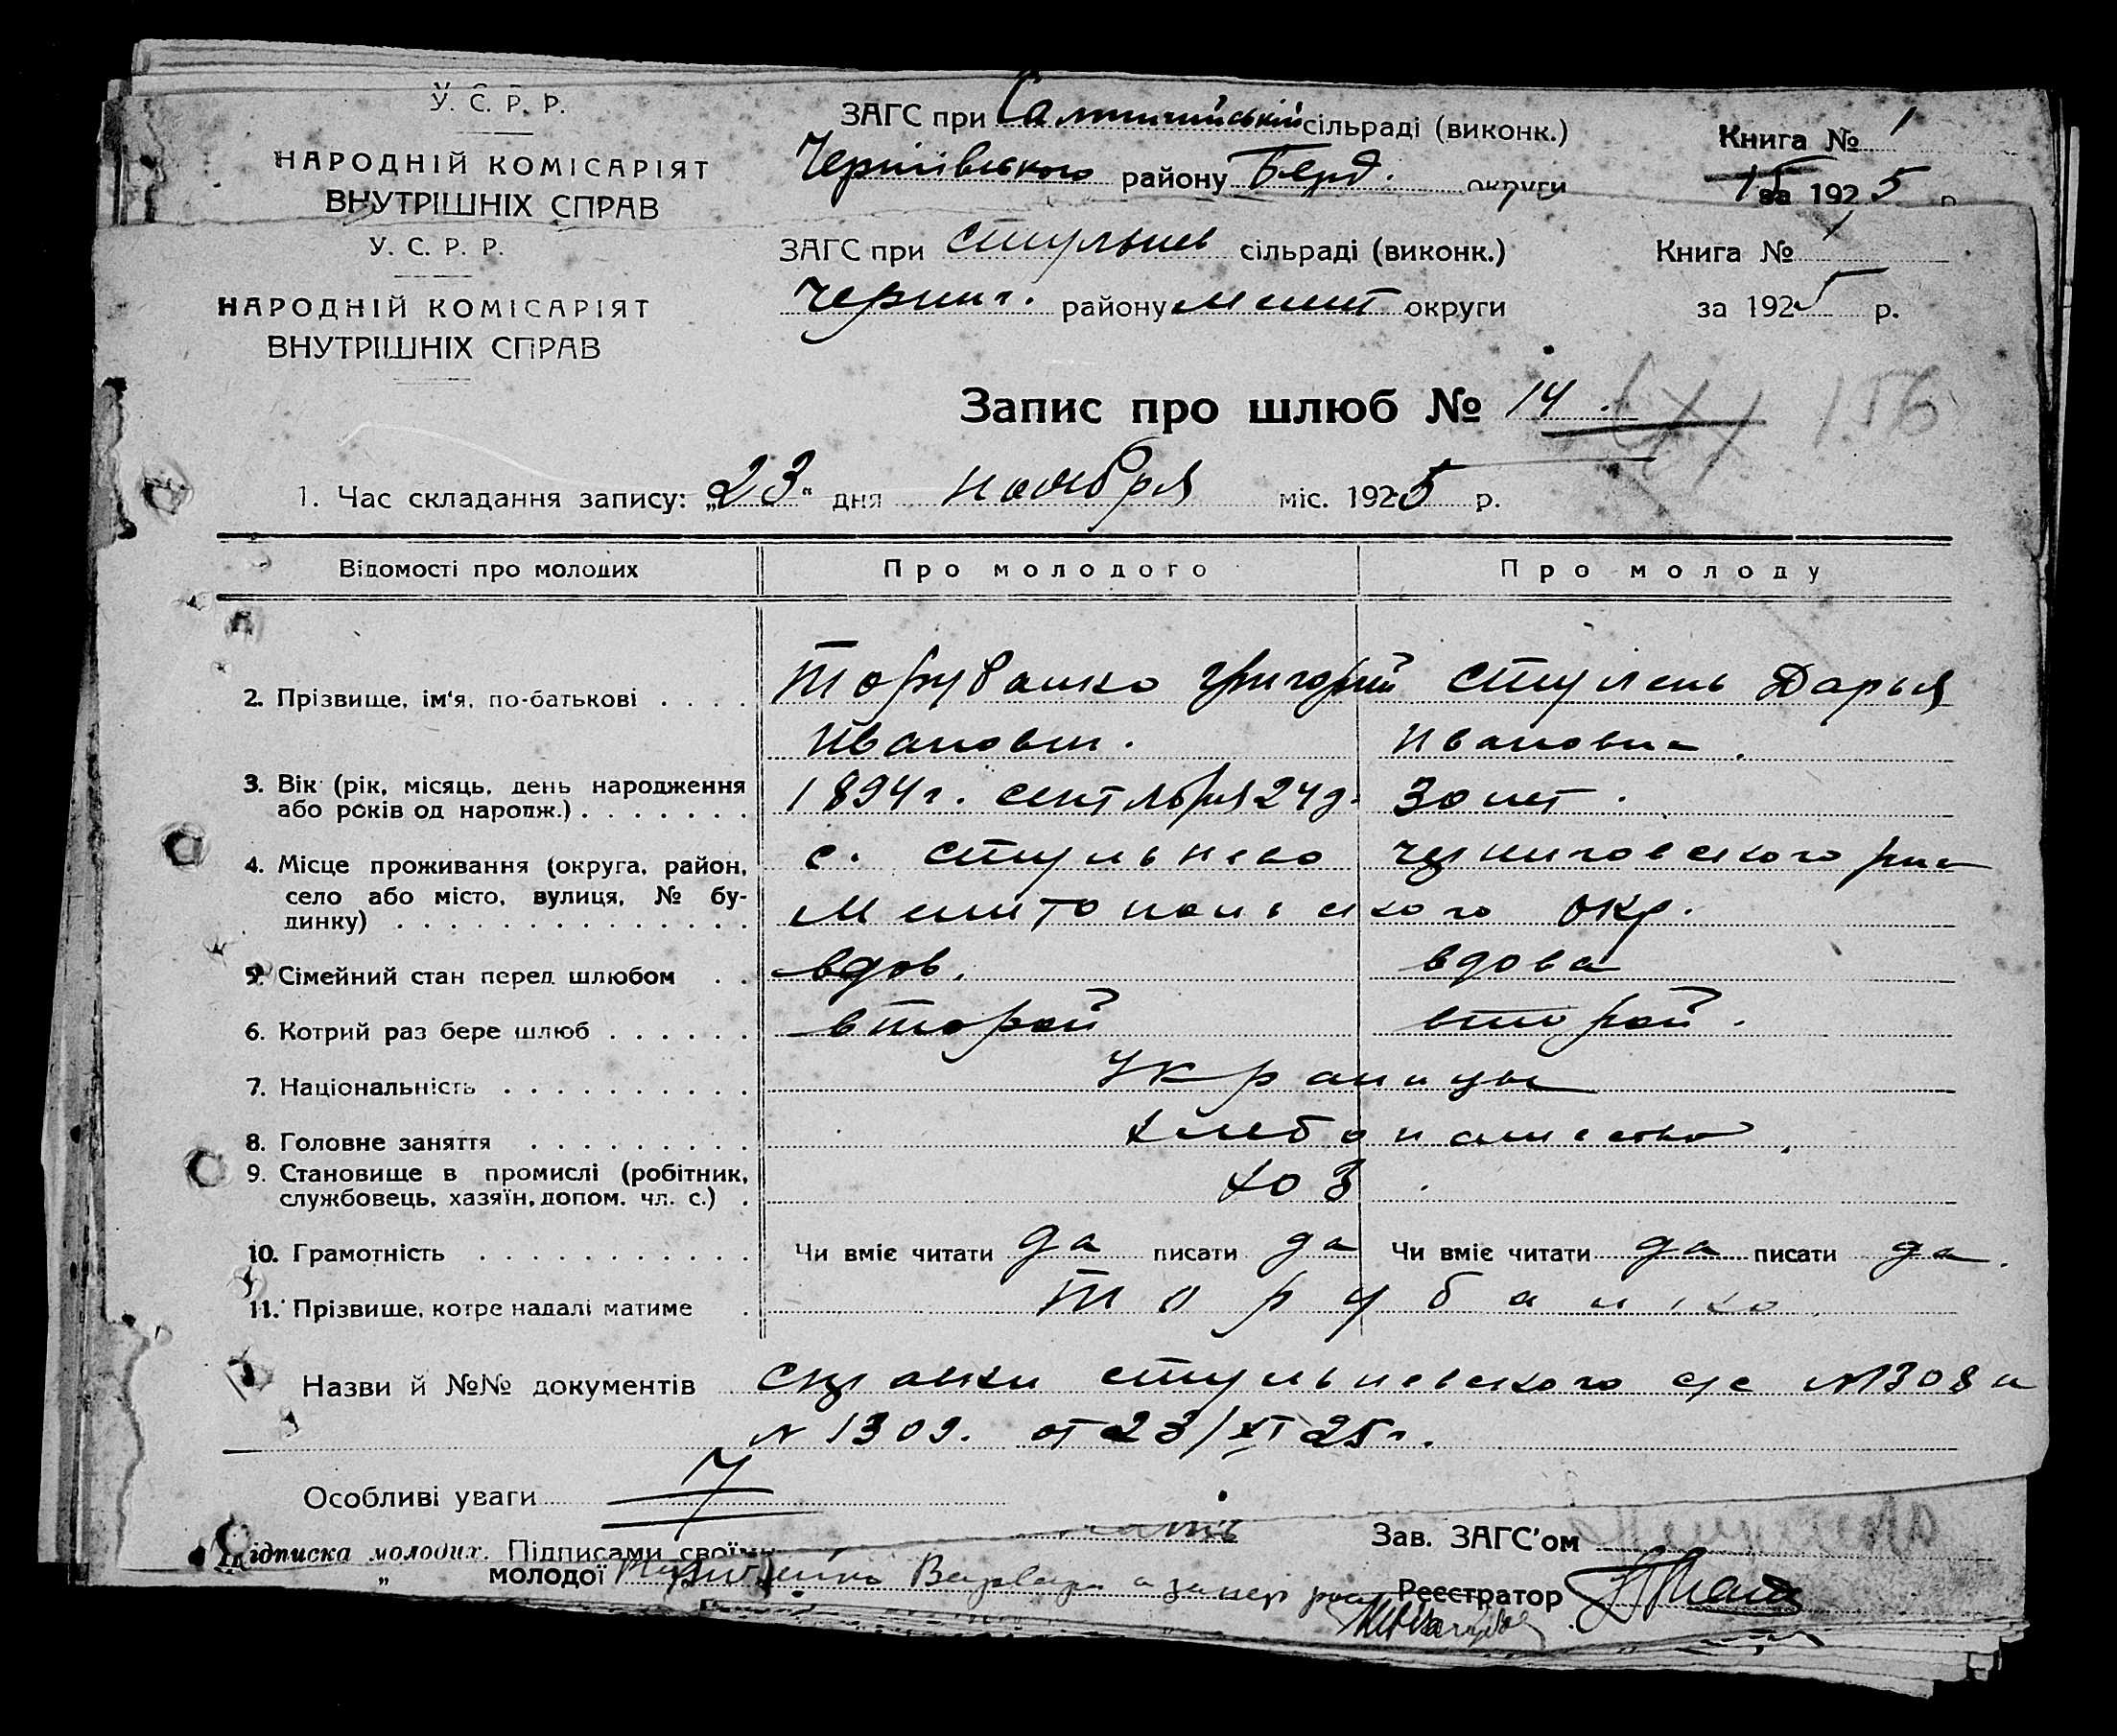 У. С. Р. Р.
НАРОДНІЙ КОМІСАРІЯТ
ВНУТРІШНІХ СПРАВ
ЗАГС при сільраді (виконк.)
Чернівського району Берд. округи
Книга № 1
за 1925 р.
У. С. Р. Р.
НАРОДНІЙ КОМІСАРІЯТ
ВНУТРІШНІХ СПРАВ
ЗАГС при Стульнев сільраді (виконк.)
Черниг. району Мелит округи
Книга № 1
за 1925 р.
Запис про шлюб № 14. 156
1. Час складання запису: „23“ дня ноября міс. 1925 р.
Відомості про молодих Про молодого Про молоду
2. Прізвище, ім'я, по-батькові . . . . Торубалко Григорий Стулень Дарья
Иванович. Ивановна.
3. Вік (рік, місяць, день народження
або років од народж.) . . . . . . . 1894 г. сентября 24 д. 30 лет.
4. Місце проживання (округа, район, с. Стульнево Черниговского
село або місто, вулиця, № бу-
динку) . . . . . . . . . . . . . . Мелитопольского окр.
5. Сімейний стан перед шлюбом . . вдов. вдова
6. Котрий раз бере шлюб . . . . . . второй второй.
7. Національність . . . . . . . . . . Украинцы
8. Головне заняття . . . . . . . . . хлебопашество
9. Становище в промислі (робітник,
службовець, хазяїн, допом. чл. с.) . хоз.
10. Грамотність . . . . . . . . . . . Чи вміє читати да писати да Чи вміє читати да писати да.
11. Прізвище, котре надалі матиме . Торубалко
Назви й №№ документів справки стульневского с/с №1308 и
№ 1309. от 23/XI 25 г.
Особливі уваги
Зав. ЗАГС'ом
Підписка молодих. Підписами своїми
„ молодої Варвара
Реєстратор